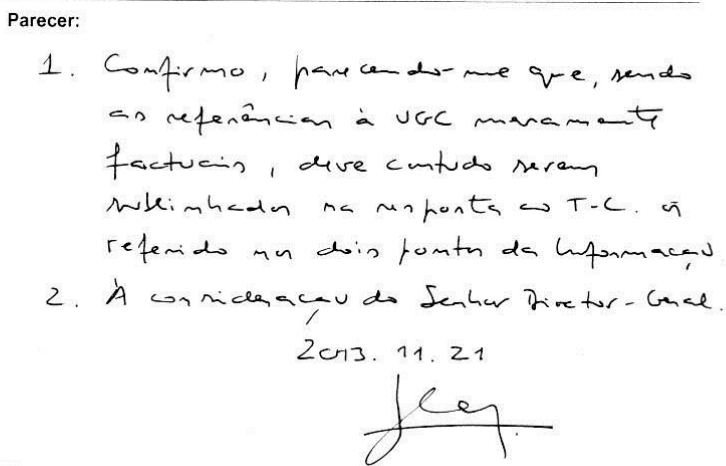 Parecer:
1. Confirmo, parecendo-me que, sendo
as referências à UGC meramente
factuais, deve contudo serem
sublinhados na resposta ao T.C. o
referido nos dois pontos da Informação
2. À consideração do Senhor Director-Geral.
2013.11.21